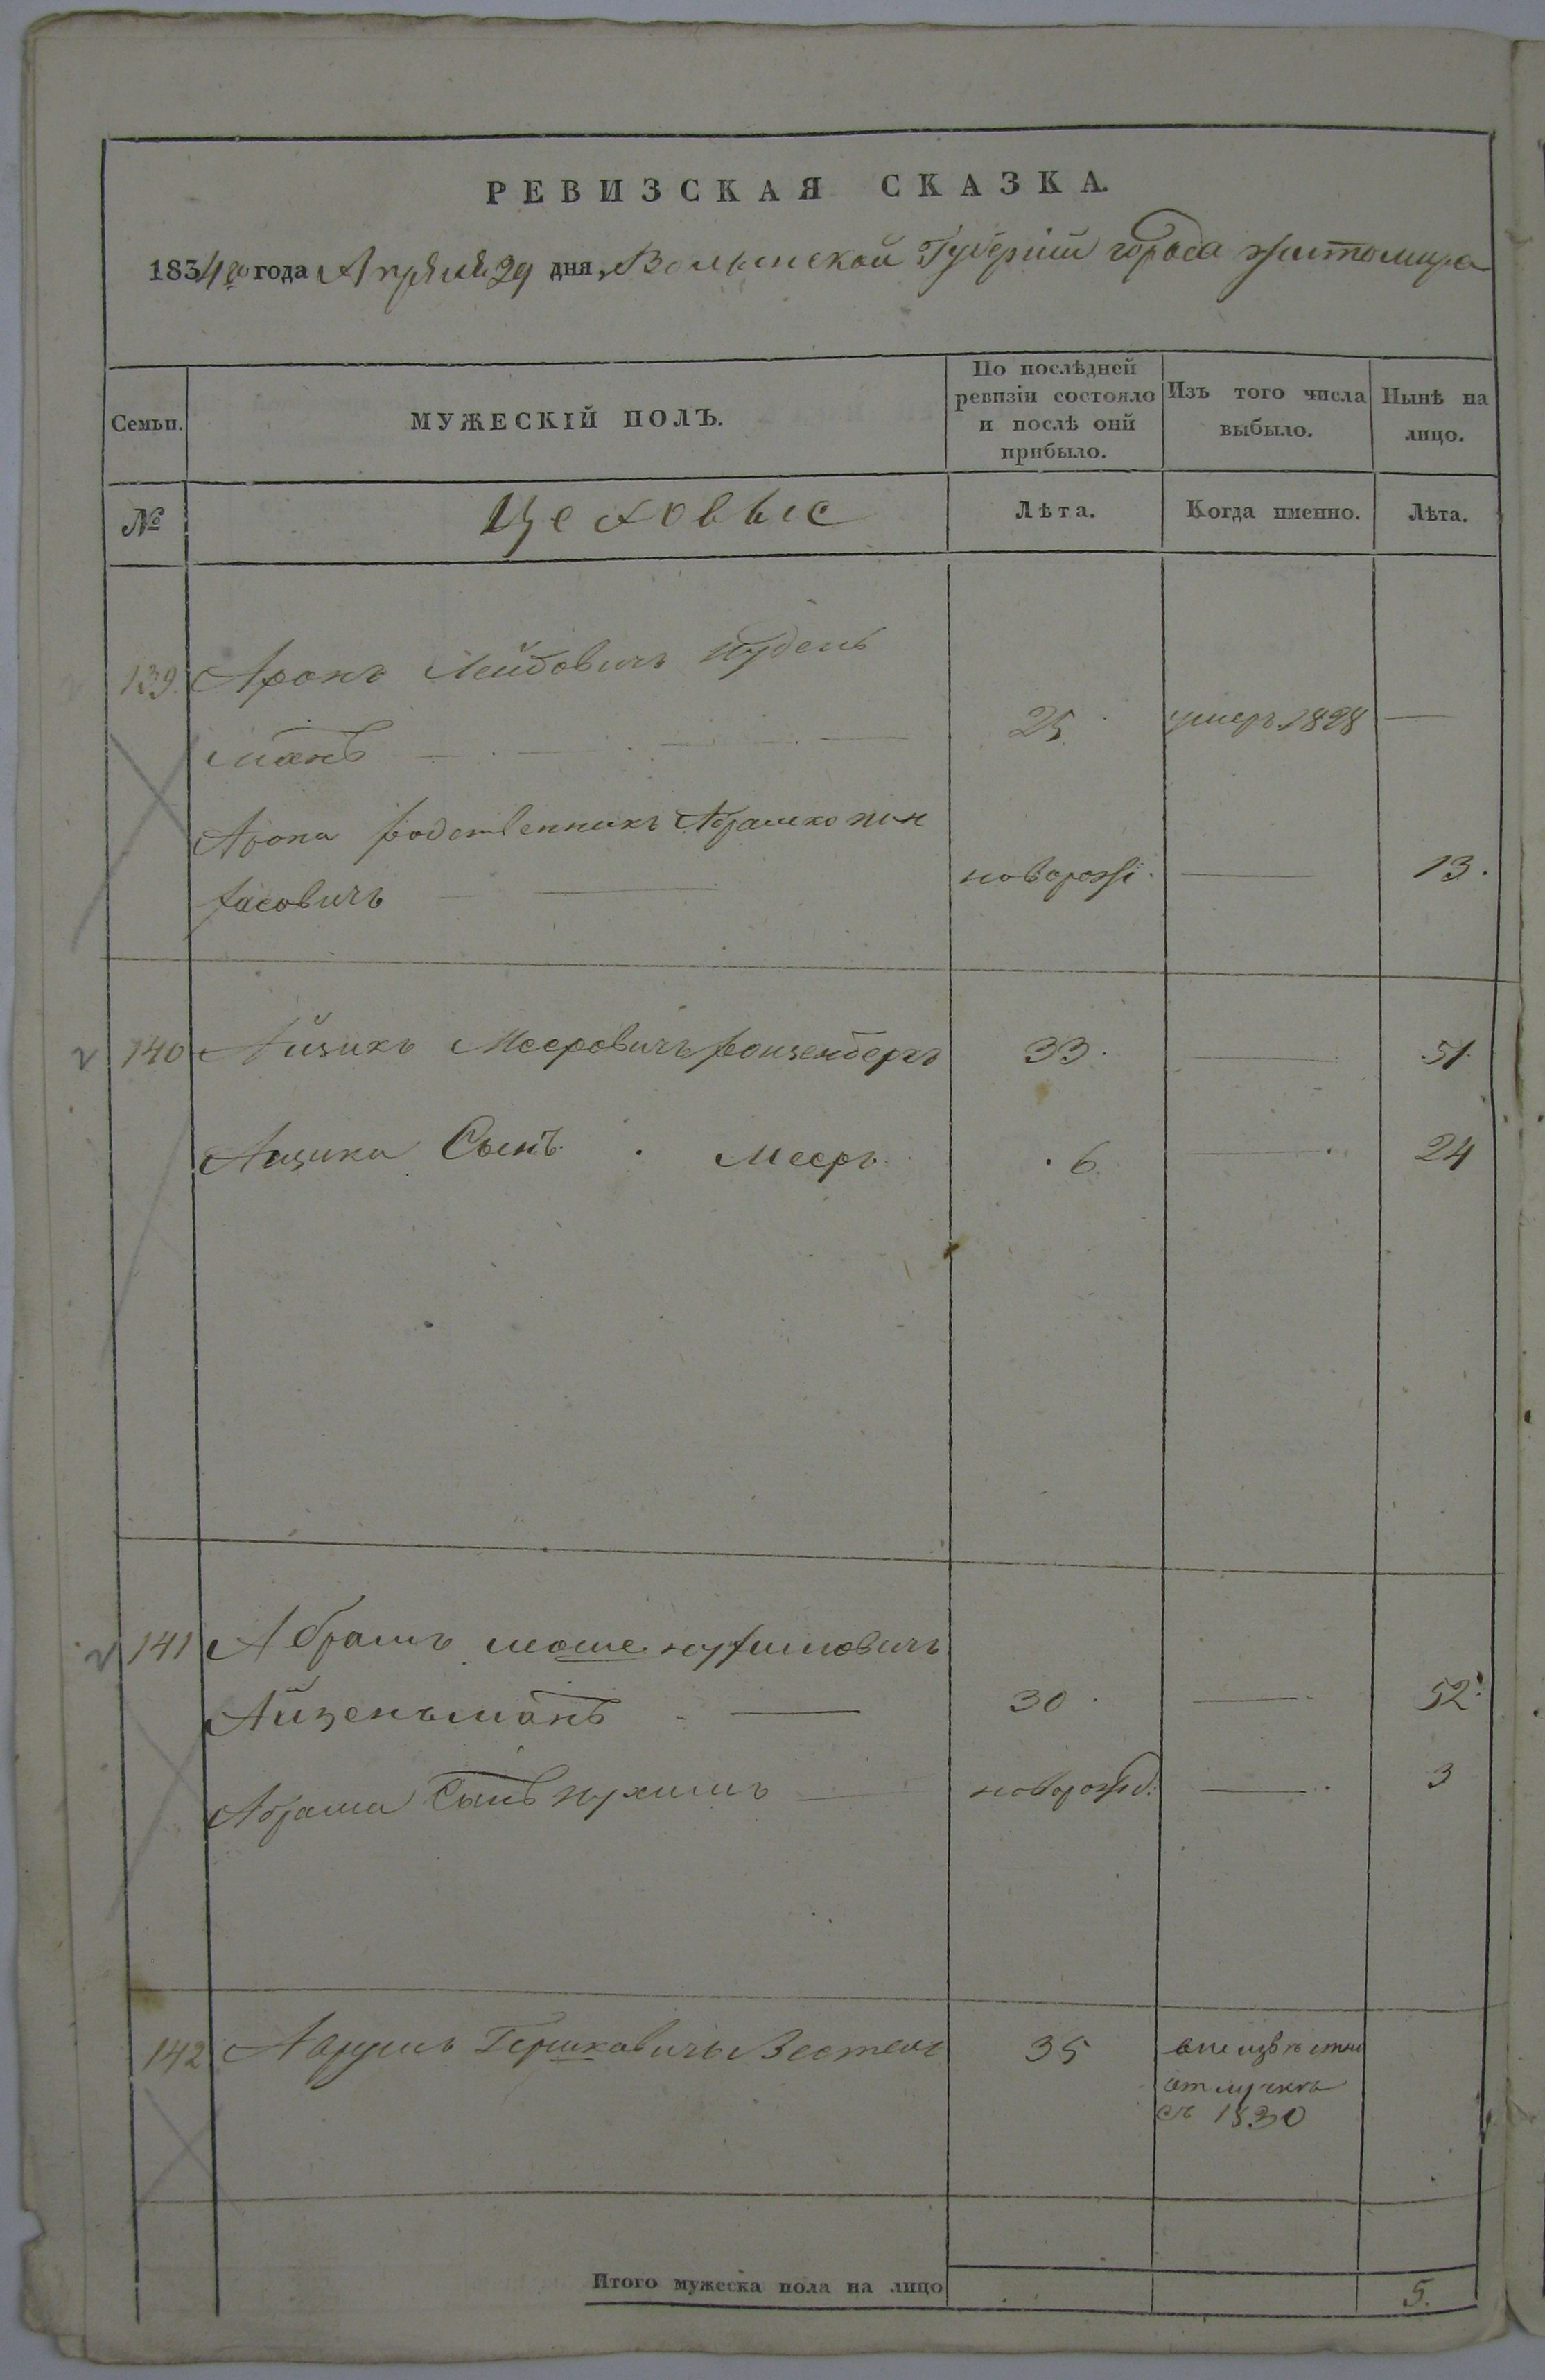 РЕВИЗСКАЯ СКАЗКА.
1834го года Апреля 29 дня, Волынской Губерніи города Житомира
Семьи. МУЖЕСКІЙ ПОЛЪ. По послѣдней ревизіи состояло и послѣ оной прибыло. Изъ того числа выбыло. Нынѣ на лицо.
№ Цеховые Лѣта. Когда именно. Лѣта.
139. Аронъ Лейбовичъ Нудель
манъ 25 умеръ 1828 —
Арона родственникъ Абрамко пин
хасовичъ новорожд. — 13.
140 Айзикъ Мееровичъ Роизенбергъ 33. — 51.
Аизика Сынъ Мееръ 6. — 24
141 Абрамъ моше нухимовичъ
Айзеньманъ 30. — 52.
Абрама Сынъ нухимъ новорожд: — 3
142 Гершковичъ 35 в неизвѣстной
отлучкѣ
съ 1830
Итого мужеска пола на лицо 5.